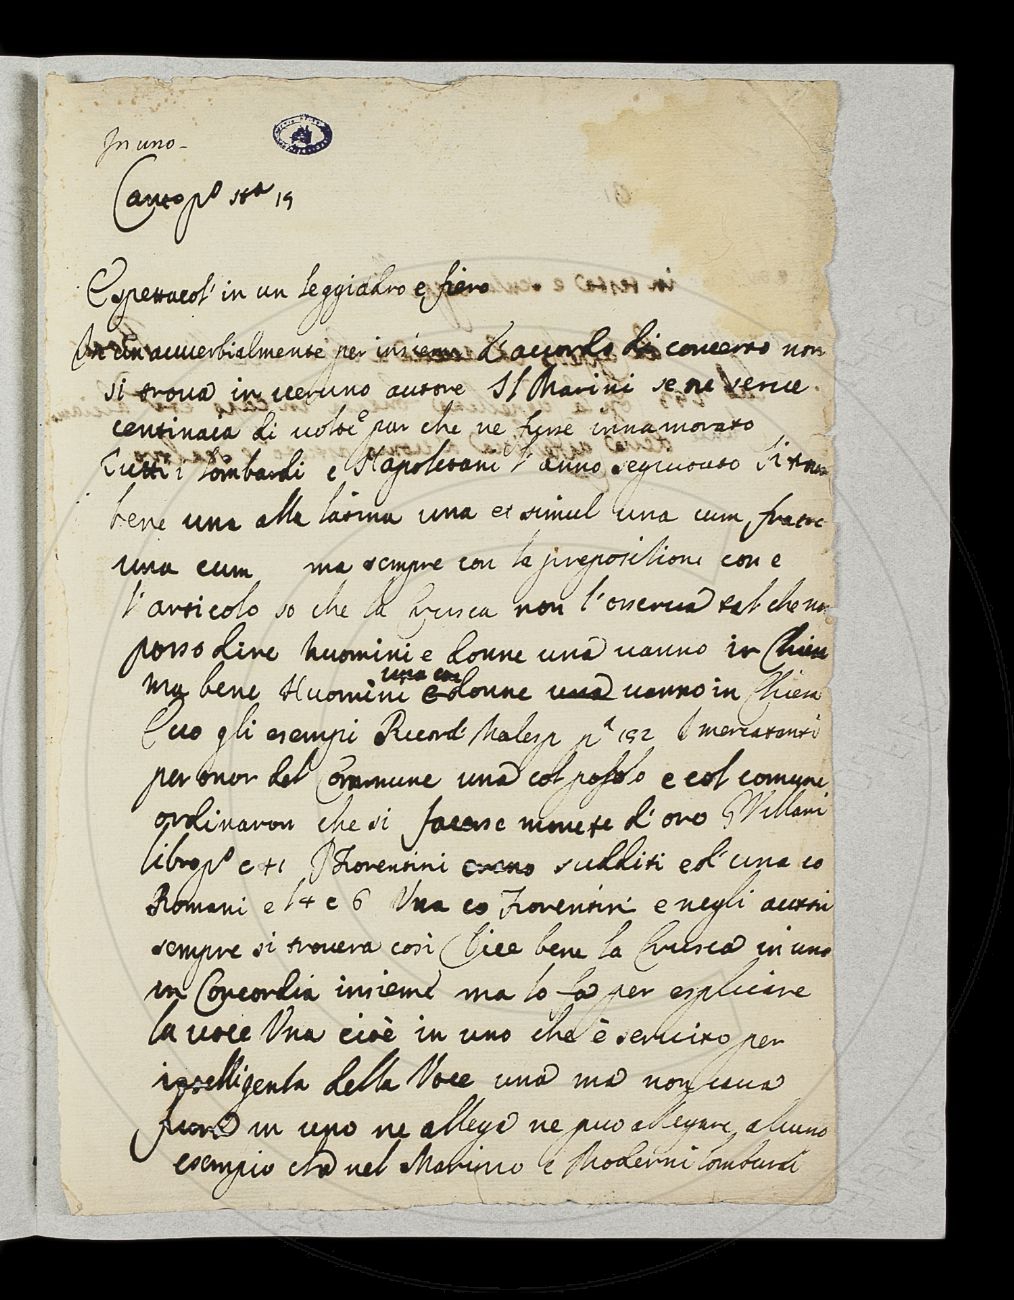 In uno -
Canto pº stª 19
E spettacol' in un leggiadro e fiero
In un avverbialmente per insieme d'accordo di concerto non
si trova in veruno autore Il Marini se ne serve
centinaia di volte par che ne fusse innamorato
Tutti i lombardi e Napoletani l'anno seguitato Si
bene una alla latina una et simul una cum fratre
una cum ma sempre con la prepositione con e
l'articolo so che la Crusca non l'osserva tal che non
posso dire huomini e donne una vanno in Chiesa
ma bene Huomini una con donne una vanno in Chiesa
Evo gli esempi Ricord Malesp pª 152 I mercatanti
per onor del Commune una col popolo e col comune
ordinaron che si facesse monete d'oro G Villani
libro pº c 41 I Fiorentini erano sudditi ed una co
Romani e l 4 c 6 Una co Fiorentini e negli autori
sempre si trovera così Dice bene la Crusca in uno
in Concordia insieme ma lo fa per esplicare
la voce Una cioè in uno che è servito per
intelligenza della Voce una ma non cava
fuora in uno ne allega ne puo allegare alcuno
esempio che nel Marino e Moderni lombardi